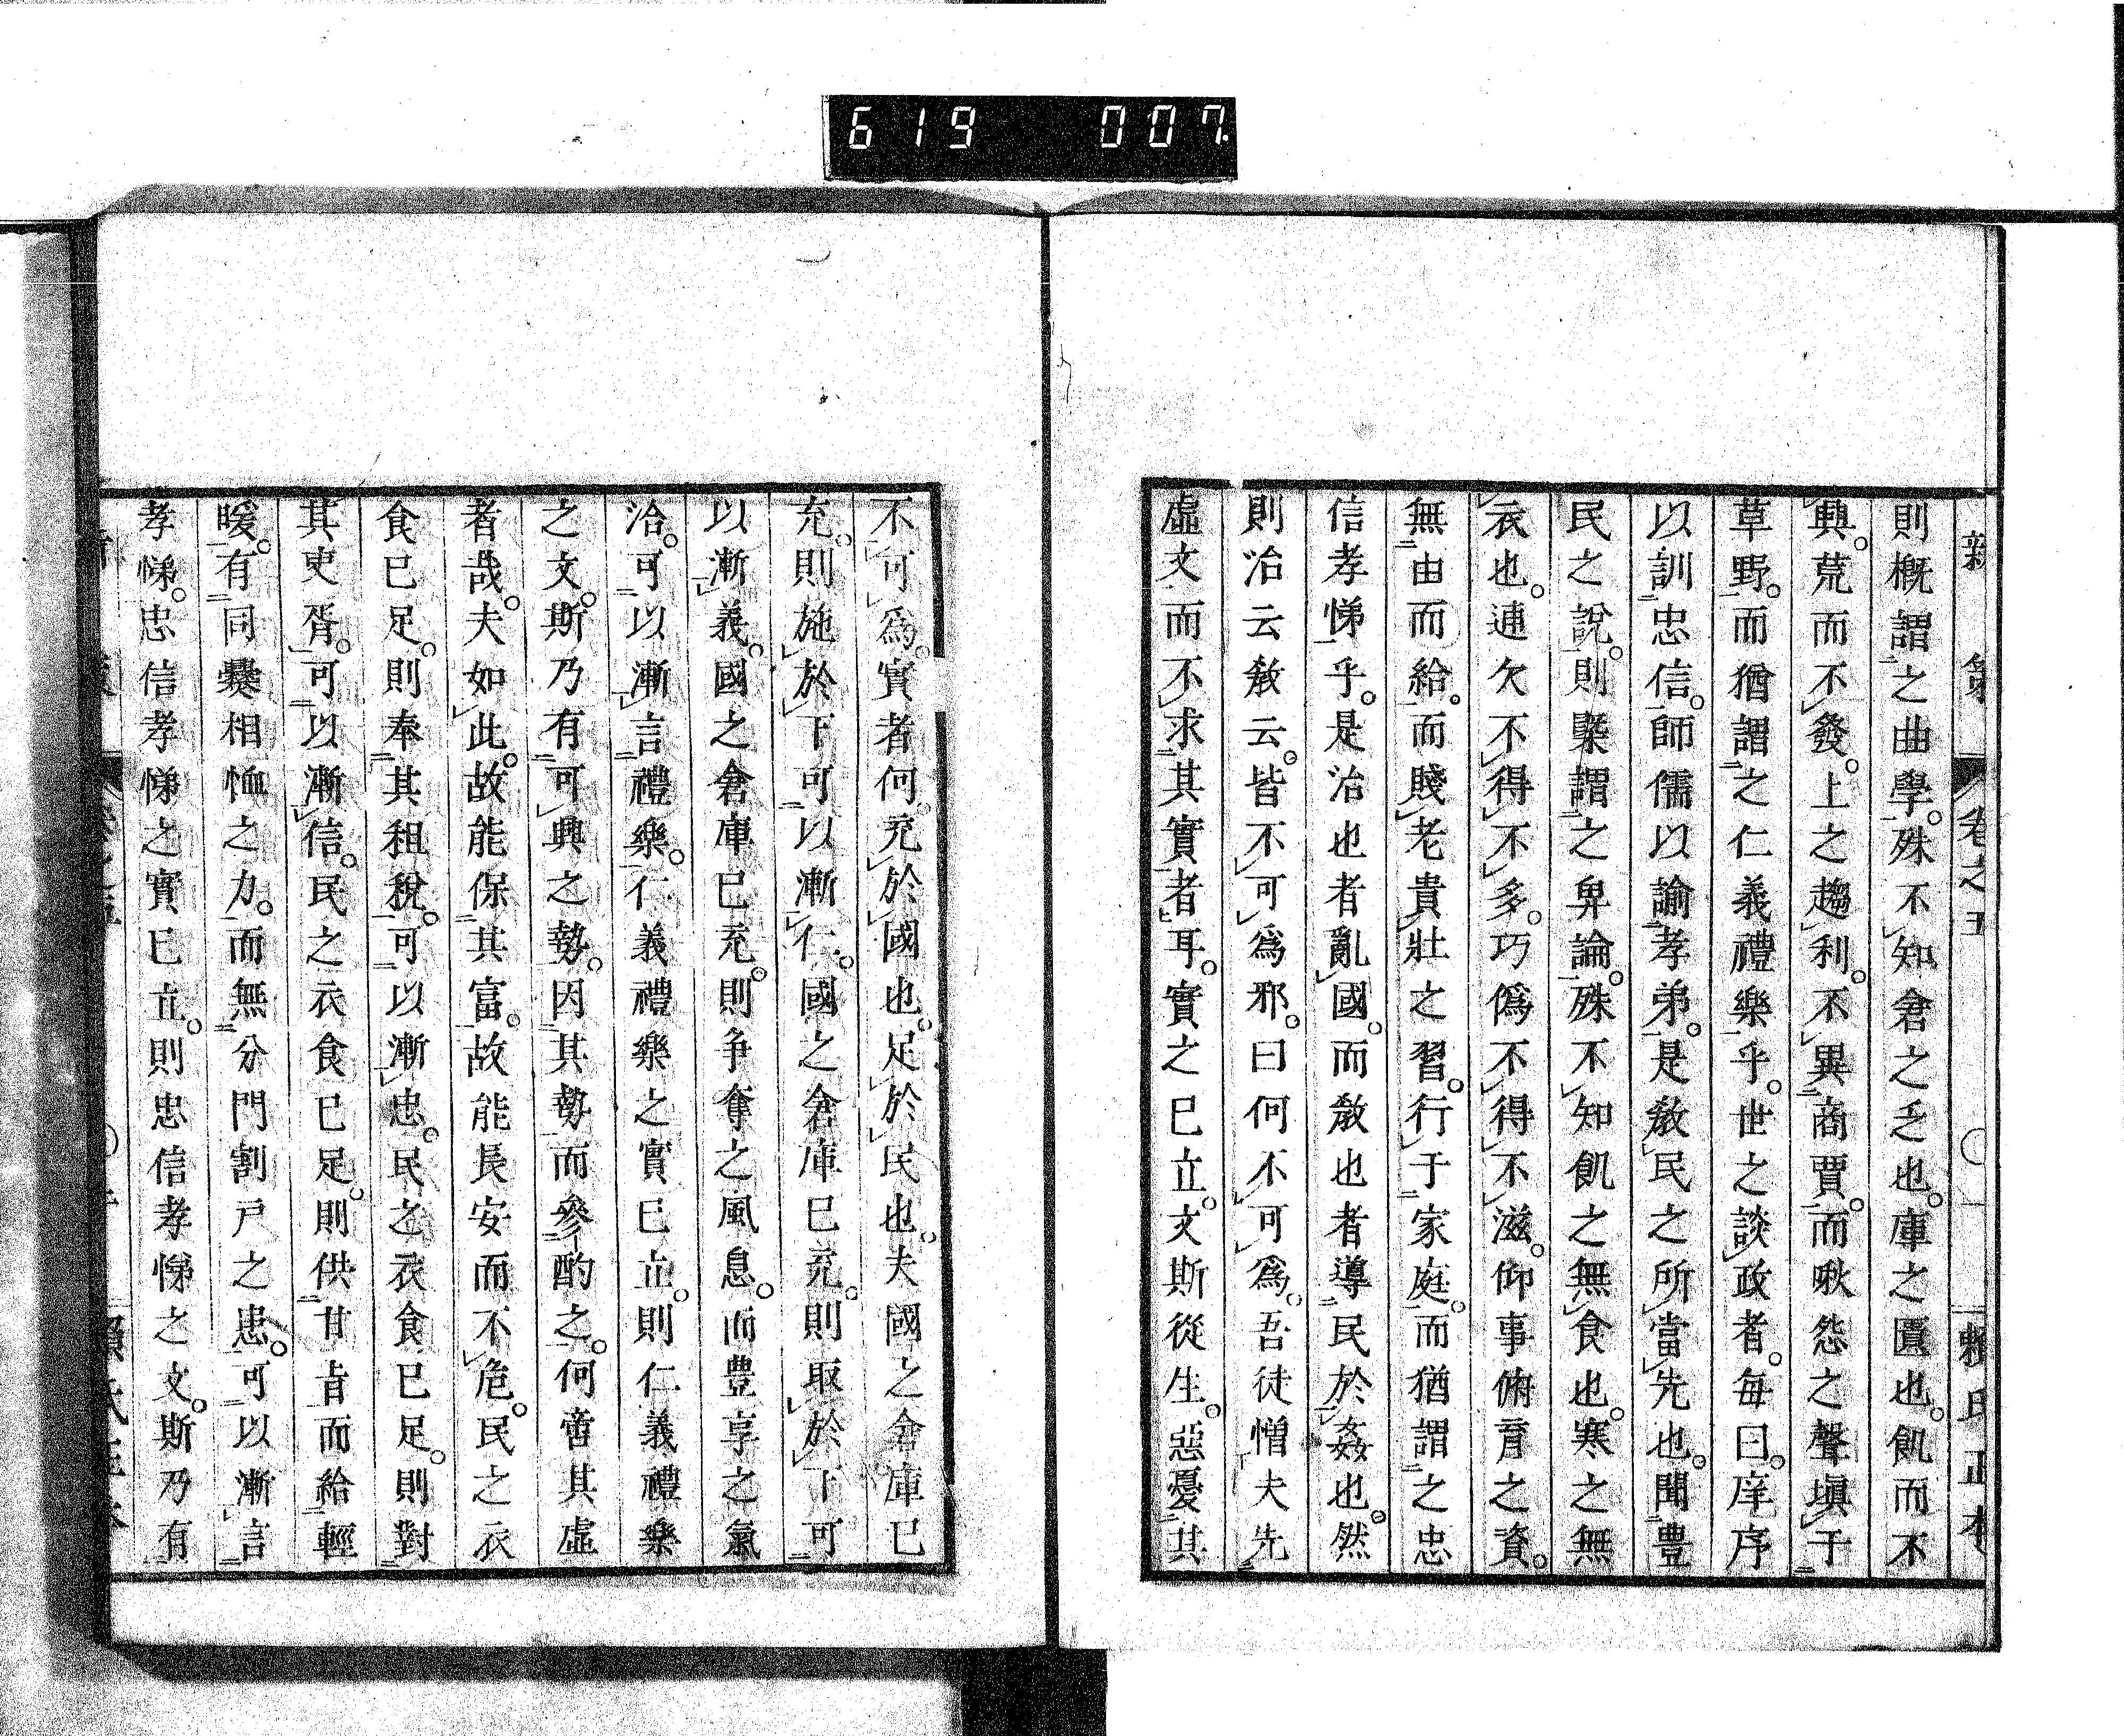 619 007
新策 卷之五 ○一 賴氏正本
則概謂之曲學。殊不知倉之乏也。庫之匱也。飢而不
興。荒而不發。上之趨利。不異商賈。而啾怨之聲塡于
草野。而猶謂之仁義禮樂乎。世之談政者。每曰。庠序
以訓忠信。師儒以諭孝弟。是敎民之所當先也。聞豊
民之說。則槩謂之卑論。殊不知飢之無食也。寒之無
衣也。逋欠不得不多。巧僞不得不滋。仰事俯育之資。
無由而給。而賤老貴壯之習。行于家庭。而猶謂之忠
信孝悌乎。是治也者亂國。而敎也者導民於姦也。然
則治云敎云。皆不可爲邪。曰何不可爲。吾徒憎夫先
虛文而不求其實者耳。實之已立。文斯從生。惡憂其
不可爲。實者何。充於國也。足於民也。夫國之倉庫已
充。則施於下可以漸仁。國之倉庫已充。則取於下可
以漸義。國之倉庫已充。則爭奪之風息。而豊享之氣
洽。可以漸言禮樂。仁義禮樂之實已立。則仁義禮樂
之文。斯乃有可興之勢。因其勢而參酌之。何啻其虛
者哉。夫如此。故能保其富。故能長安而不危。民之衣
食已足。則奉其租稅。可以漸忠。民之衣食已足。則對
其吏胥。可以漸信。民之衣食已足。則供甘旨而給輕
暖。有同爨相恤之力。而無分門割戶之患。可以漸言
孝悌。忠信孝悌之實已立。則忠信孝悌之文。斯乃有